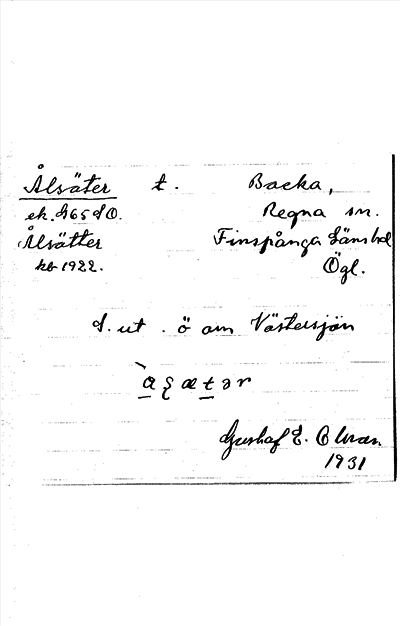 Ålsäter t. Backa,
ek. 465 d O. Regna sn.
Ålsätter Finspånga länshd
kb 1922. Ögl.
S. ut. ö om Västersjön
Gustaf E. Olsson
1931